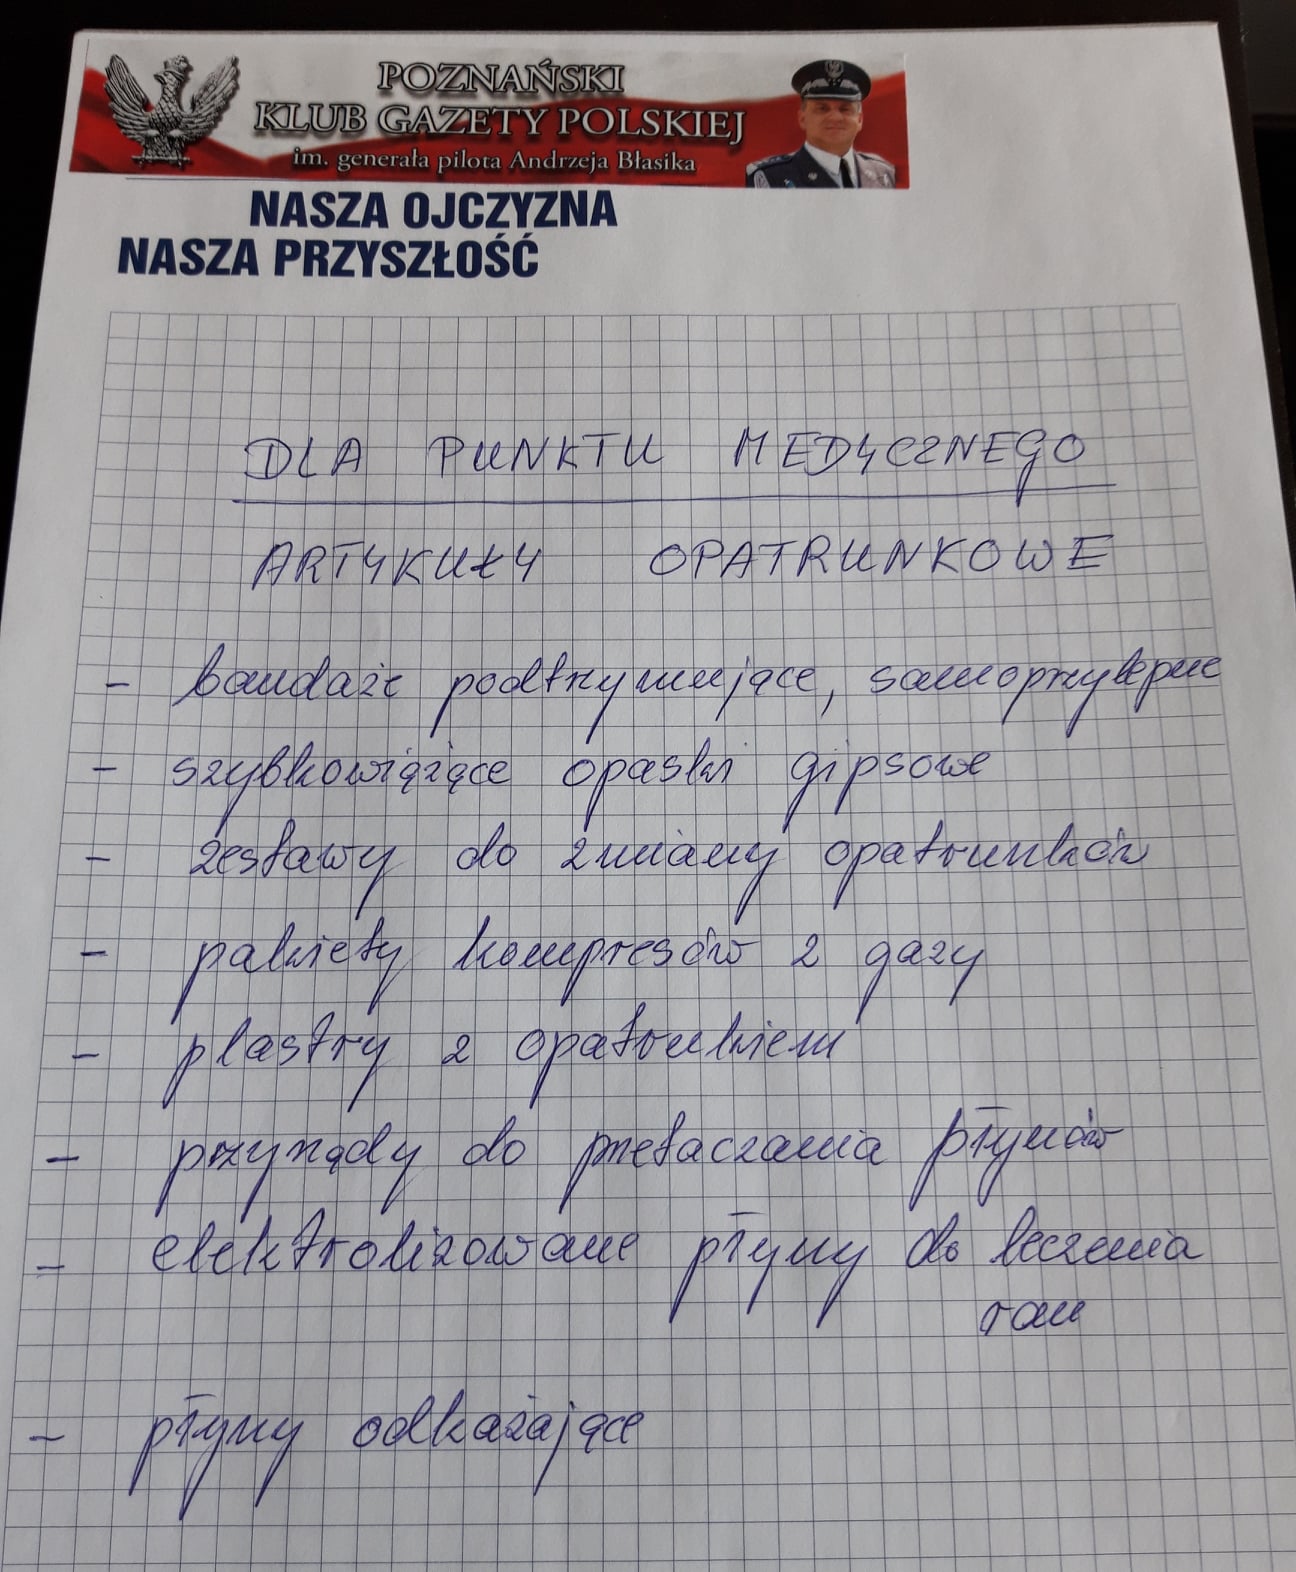 POZNAŃSKI
KLUB GAZETY POLSKIEJ
im. generała pilota Andrzeja Błasika
NASZA OJCZYZNA
NASZA PRZYSZŁOŚĆ
DLA PUNKTU MEDYCZNEGO
ARTYKUŁY OPATRUNKOWE
- bandaże podtrzymujące, samoprzylepne
- szybkowiążące opaski gipsowe
- zestawy do zmiany opatrunków
- pakiety kompresów z gazy
- plastry z opatrunkiem
- przyrządy do przetaczania płynów
- elektrolizowane płyny do leczenia
ran
- płyny odkażające